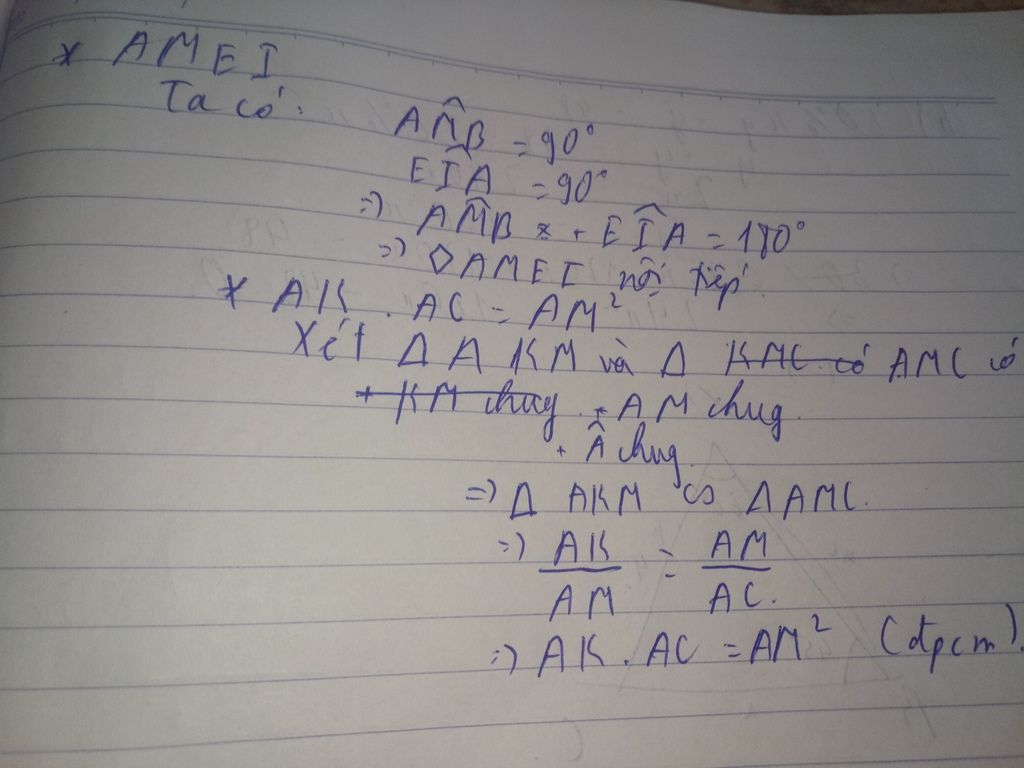 * AMEI
Ta có:
AM̂B = 90°
EÎA = 90°
=) AM̂B + EÎA = 180°
=) ◇AMEI nội tiếp.
* AK . AC = AM²
Xét Δ AKM và Δ KMC có AMC có
+ KM chug. + AM chug.
+ Â chug.
=) Δ AKM ∽ Δ AMC.
=) AK/AM = AM/AC.
=) AK . AC = AM² (đpcm).